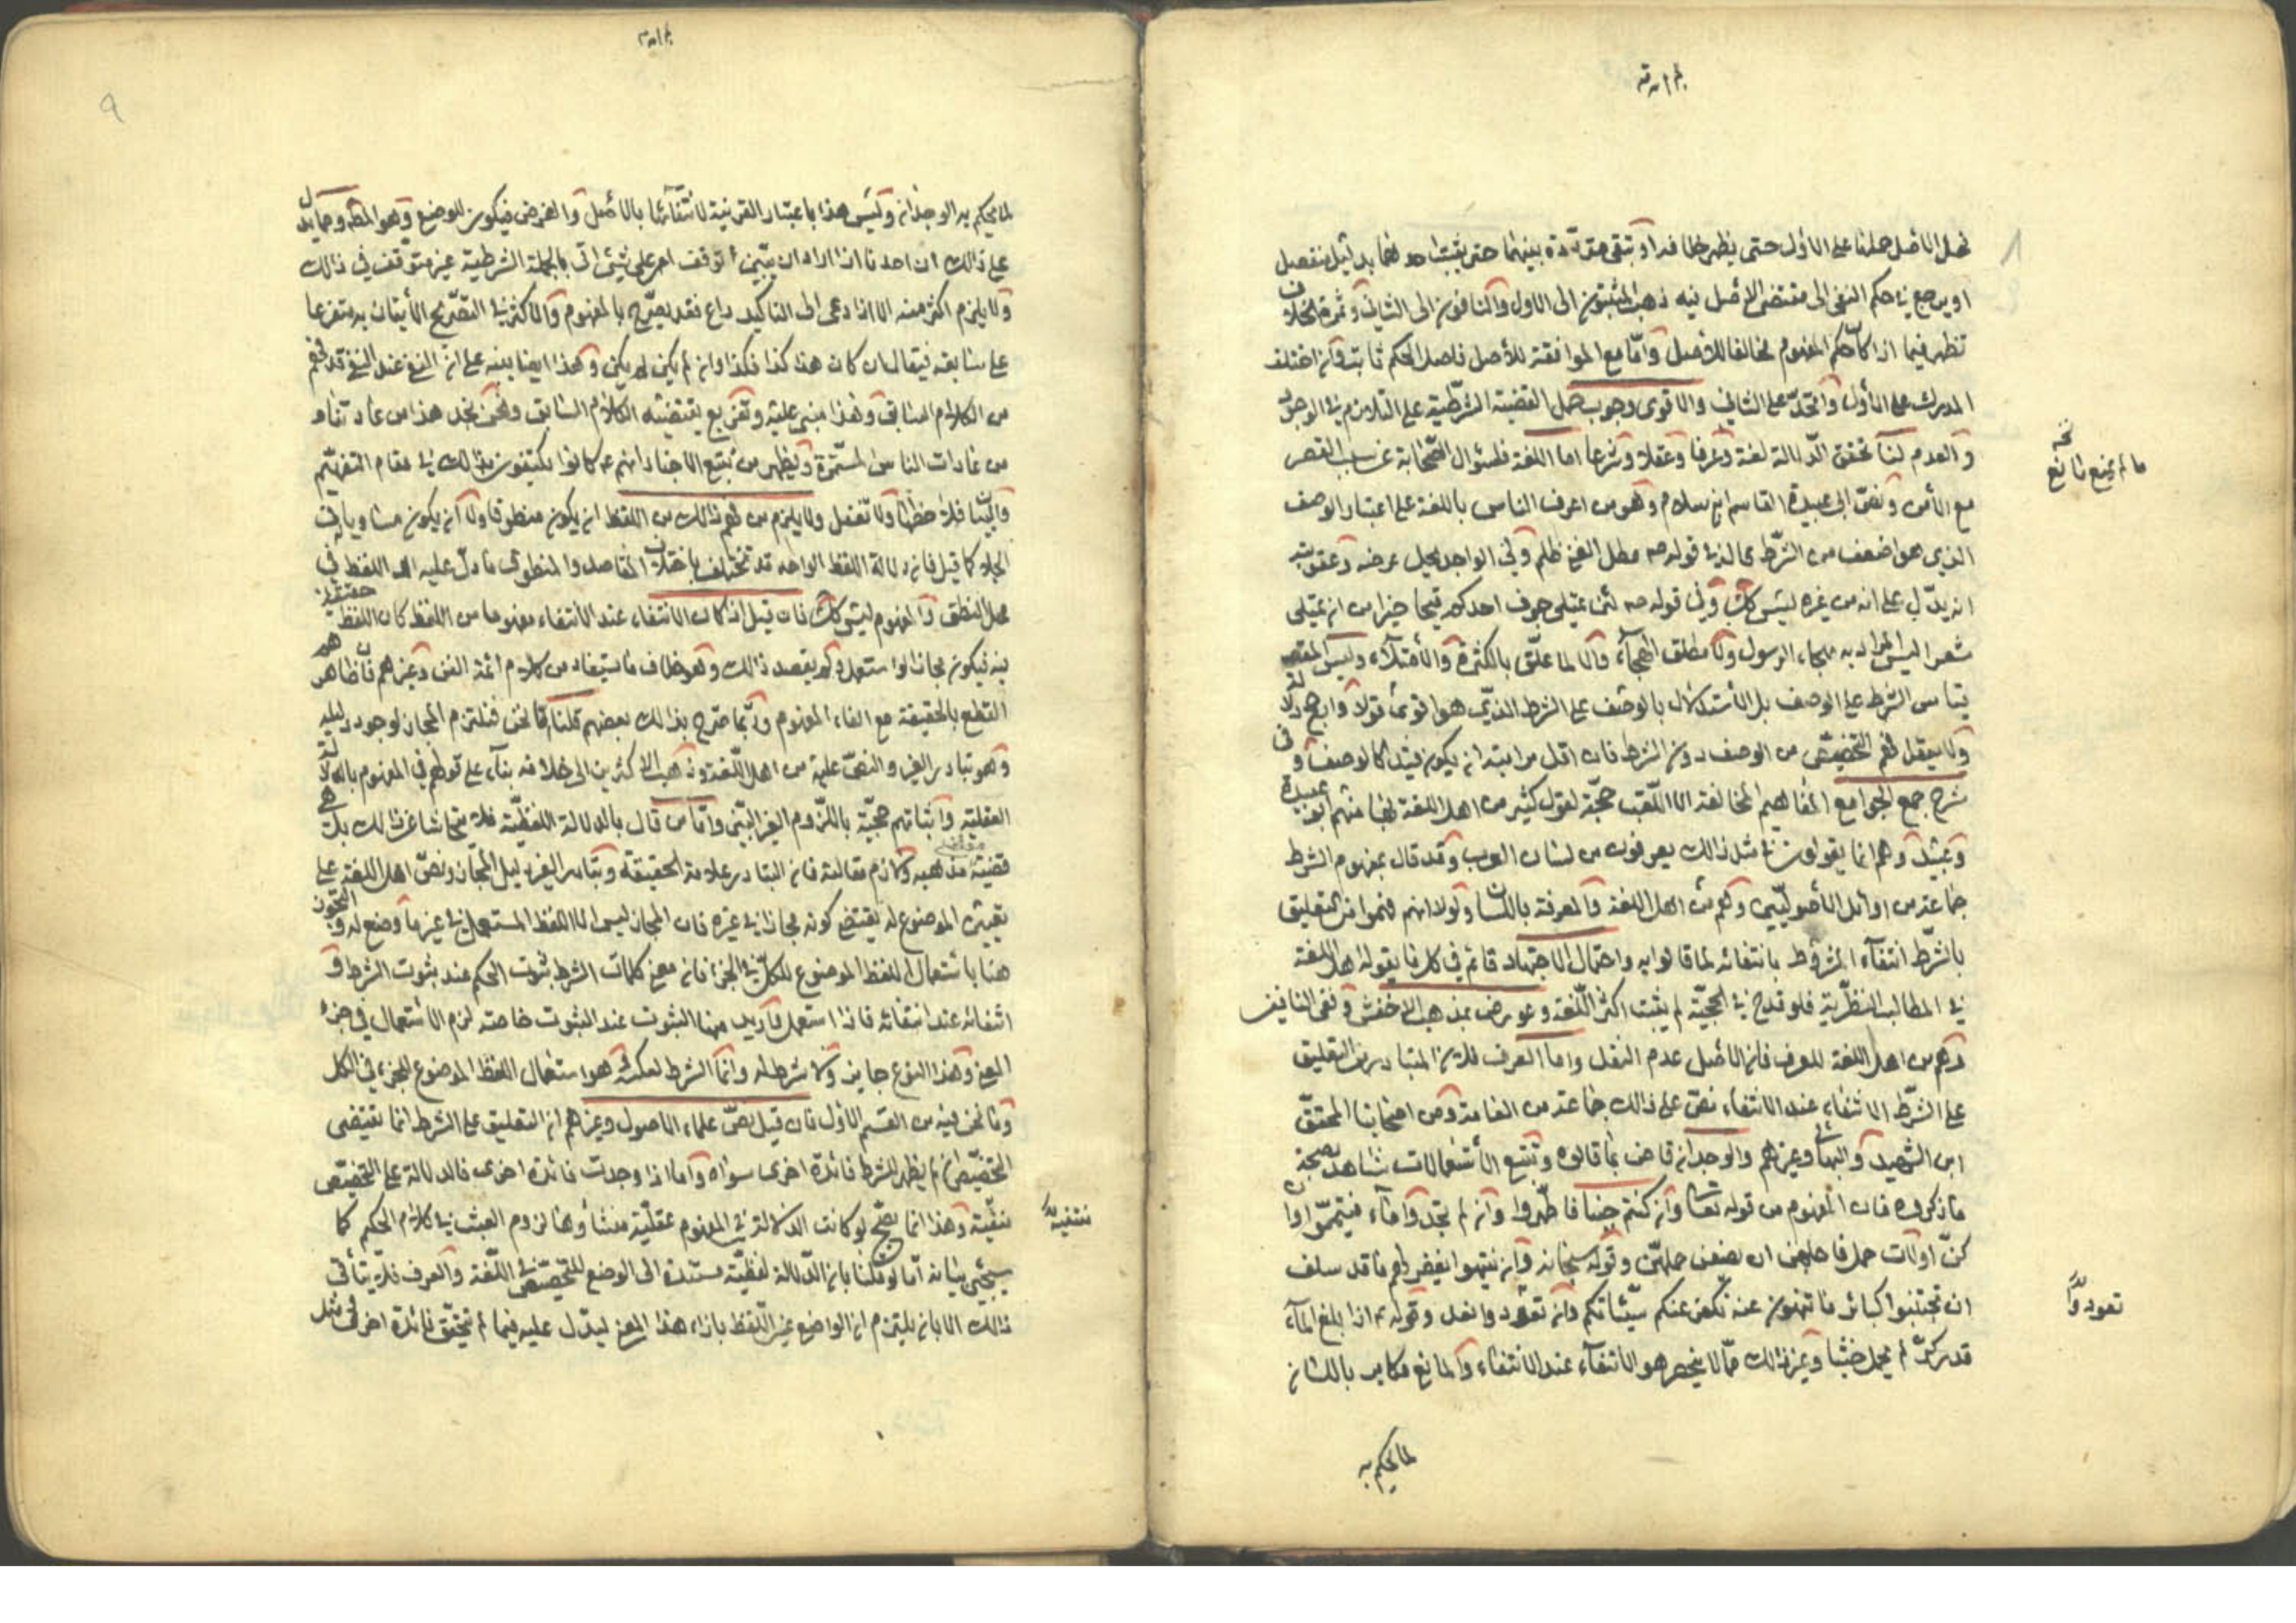 فهل الأصل حملنا على الأول حتى يظهر خلافه او تبقى مترددة بينهما حتى يثبت احدهما بدليل منفصل
او يرجع في حكم النفي الى مقتضى الأصل فيه ذهب المثبتون الى الاول والنافون الى الثاني وثمرة الخلاف
تظهر فيما اذا كان حكم المفهوم مخالفا للأصل وأما مع الموافقة للأصل فاصل الحكم ثابت وان اختلف
المدرك على الأول واتحد على الثاني والاقوى وجوب حمل القضية الشرطية على التلازم في الوجود
والعدم لنا تحقق الدلالة لغة وعرفا وعقلا وشرعا اما اللغة فلسؤال الصحابة عن سبب القصر
ما لم يمنع مانع
مع الأمن ونص ابى عبيدة القاسم بن سلام وهو من اعرف الناس باللغة على اعتبار الوصف
الذي هو اضعف من الشرط في قوله ص مطل الغني ظلم وفي الواجد يحل عرضه وعقوبته
انه يدل على ان من غيره ليس كك وفي قوله ص لئن يمتلى جوف احدكم قيحا خير من ان يمتلى
شعرا ليس المراد به هجاء الرسول ولا مطلق الهجاء والا لما علق بالكثرة والأمتلاء وليس المقصد
قياس الشرط على الوصف بل الأستدلال بالوصف على الشرط الذى هو اقوى قولا وابهر دلالة
ولا يعقل فهم التخصيص من الوصف دون الشرط فان اقل مراتبه ان يكون قيدا كالوصف وفى
شرح جمع الجوامع المفاهيم المخالفة الا اللقب حجة لقول كثير من اهل اللغة بها منهم ابو عبيدة
وعبيد وهم انما يقولون في مثل ذلك يعرفون من لسان العرب وقد قال بمفهوم الشرط
جماعة من اوائل الأصوليين وهم من اهل اللغة والمعرفة باللسان ولولا انهم فهموا من التعليق
بالشرط انتفاء المشروط بانتفائه لما قالوا به واحتمال الاجتهاد قائم في كل ما يقوله اهل اللغة
في المطالب النظرية فلو قدح في الحجية لم يثبت اكثر اللغة وعورض بمذهب الاخفش ونفى النافين
وهم من اهل اللغة للعرف فان الأصل عدم النقل واما العرف فلان المتبادر من التعليق
على الشرط الانتفاء عند الانتفاء نص على ذلك جماعة من العامة ومن اصحابنا المحقق
ابن الشهيد والبهائى وغيرهم والوجدان قاض بما قالوه وتتبع الأستعمالات شاهد بصحة
ما ذكروه فان المفهوم من قوله تعالى وان كنتم جنبا فاطهروا وان لم تجدوا ماء فتيمموا وان
كن اولات حمل فاجلهن ان يضعن حملهن وقوله سبحانه وان ينتهوا يغفر لهم ما قد سلف
ان تجتنبوا كبائر ما تنهون عنه نكفر عنكم سيئاتكم وان تعودوا نعد وقوله ع اذا بلغ الماء
تعودوا
قدر كر لم يحمل خبثا وغير ذلك مما لا ينحصر هو الانتفاء عند الانتفاء والمانع مكابر باللسان
لما يحكم به
٩
لما يحكم به الوجدان وليس هذا باعتبار القرينة لانتفائها بالأصل والفرض فيكون للوضع وهو المطلوب ومما يدل
على ذلك ان احدنا اذا اراد ان يبين توقف امر على شيئ اتى بالجملة الشرطية غير متوقف في ذلك
ولا يلزم اكثر منه الا اذا دعى الى التاكيد داع فقد يصرح بالمفهوم والاكثر في التصريح الأتيان به متفرعا
على سابقه فيقال ان كان هذا كذا فكذا وان لم يكن لم يكن وهذا ايضا ينبه على ان النفي عند النفي قد فهم
من الكلام السابق وهذا مبنى عليه وتفريع يقتضيه الكلام السابق ونحن نجد هذا من عادتنا و
من عادات الناس المستمرة ويظهر من تتبع الاخبار انهم ع كانوا يكتفون بذلك في مقام التفهيم
والبيان فلاحظها ولا تغفل ولا يلزم من فهم ذلك من اللفظ ان يكون منطوقا ولا ان يكون مساويا له في
الجلاء كما قيل فان دلالة اللفظ الواحد قد تختلف باختلاف المقاصد والمنطوق ما دل عليه اللفظ في
محل النطق والمفهوم ليس كك فان قيل اذا كان الانتفاء عند الانتفاء مفهوما من اللفظ كان اللفظ حقيقة
فيه فيكون مجازا لو استعمل ولم يقصد ذلك وهو خلاف ما يستفاد من كلام ائمة الفن وغيرهم فان ظاهرهم
القطع بالحقيقة مع الغاء المفهوم وربما صرح بذلك بعضهم قلنا اما نحن فنلتزم المجاز لوجود دليله
وهو تبادر الغير والنص عليه من اهل اللغة وذهب الاكثرين الى خلافه بناء على قولهم في المفهوم بالدلالة
العقلية واثباتهم حجية باللزوم الغير البين وأما من قال بالدلالة اللفظية فلا يتحاشا عن ذلك بل هي
قضية مذهبه ولازم مقالته فان التبادر علامة الحقيقة وتبادر الغير دليل المجاز ونص اهل اللغة على
تعيين الموضوع له يقتضي كونه مجازا في غيره فان المجاز ليس الا اللفظ المستعمل في غير ما وضع له والتجوز
هنا باستعمال اللفظ الموضوع للكل في الجزء فان معنى كلمات الشرط ثبوت الحكم عند ثبوت الشرط و
انتفائه عند انتفائه فاذا استعمل واريد منها الثبوت عند الثبوت خاصة لزم الأستعمال في جزء
المعنى وهذا النوع جايز ولا شرط له وانما الشرط لعكسه وهو استعمال اللفظ الموضوع للجزء في الكل
وما نحن فيه من القسم الاول فان قيل نص علماء الاصول وغيرهم ان التعليق على الشرط انما يقتضى
التخصيص ان لم يظهر للشرط فائدة اخرى سواه واما اذا وجدت فائدة اخرى فالدلالة على التخصيص
منتفية وهذا انما يصح لو كانت الدلالة في المفهوم عقلية منشأوها لزوم العبث في كلام الحكيم كما
منتفية
سيجئ بيانه اما لو قلنا بان الدلالة لفظية مستندة الى الوضع للتخصيص في اللغة والعرف فلا يتأتى
ذلك الا بان يلتزم ان الواضع عين اللفظ بازاء هذا المعنى ليدل عليه فيما لم يتحقق فائدة اخرى في مثل